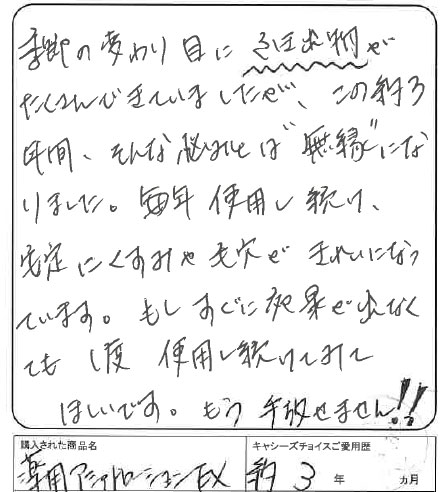 季節の変わり目に ふき出物が
たくさんできていましたが、この約3
年間、そんな悩みとは"無縁"にな
りました。毎年 使用し続け、
確実にくすみや毛穴が きれいになっ
ています。もし すぐに効果が出なく
ても 1度 使用し続けてみて
ほしいです。もう 手放せません!!
購入された商品名 キャシーズチョイスご愛用歴
薬用 ローションEX 約 3 年 ヵ月